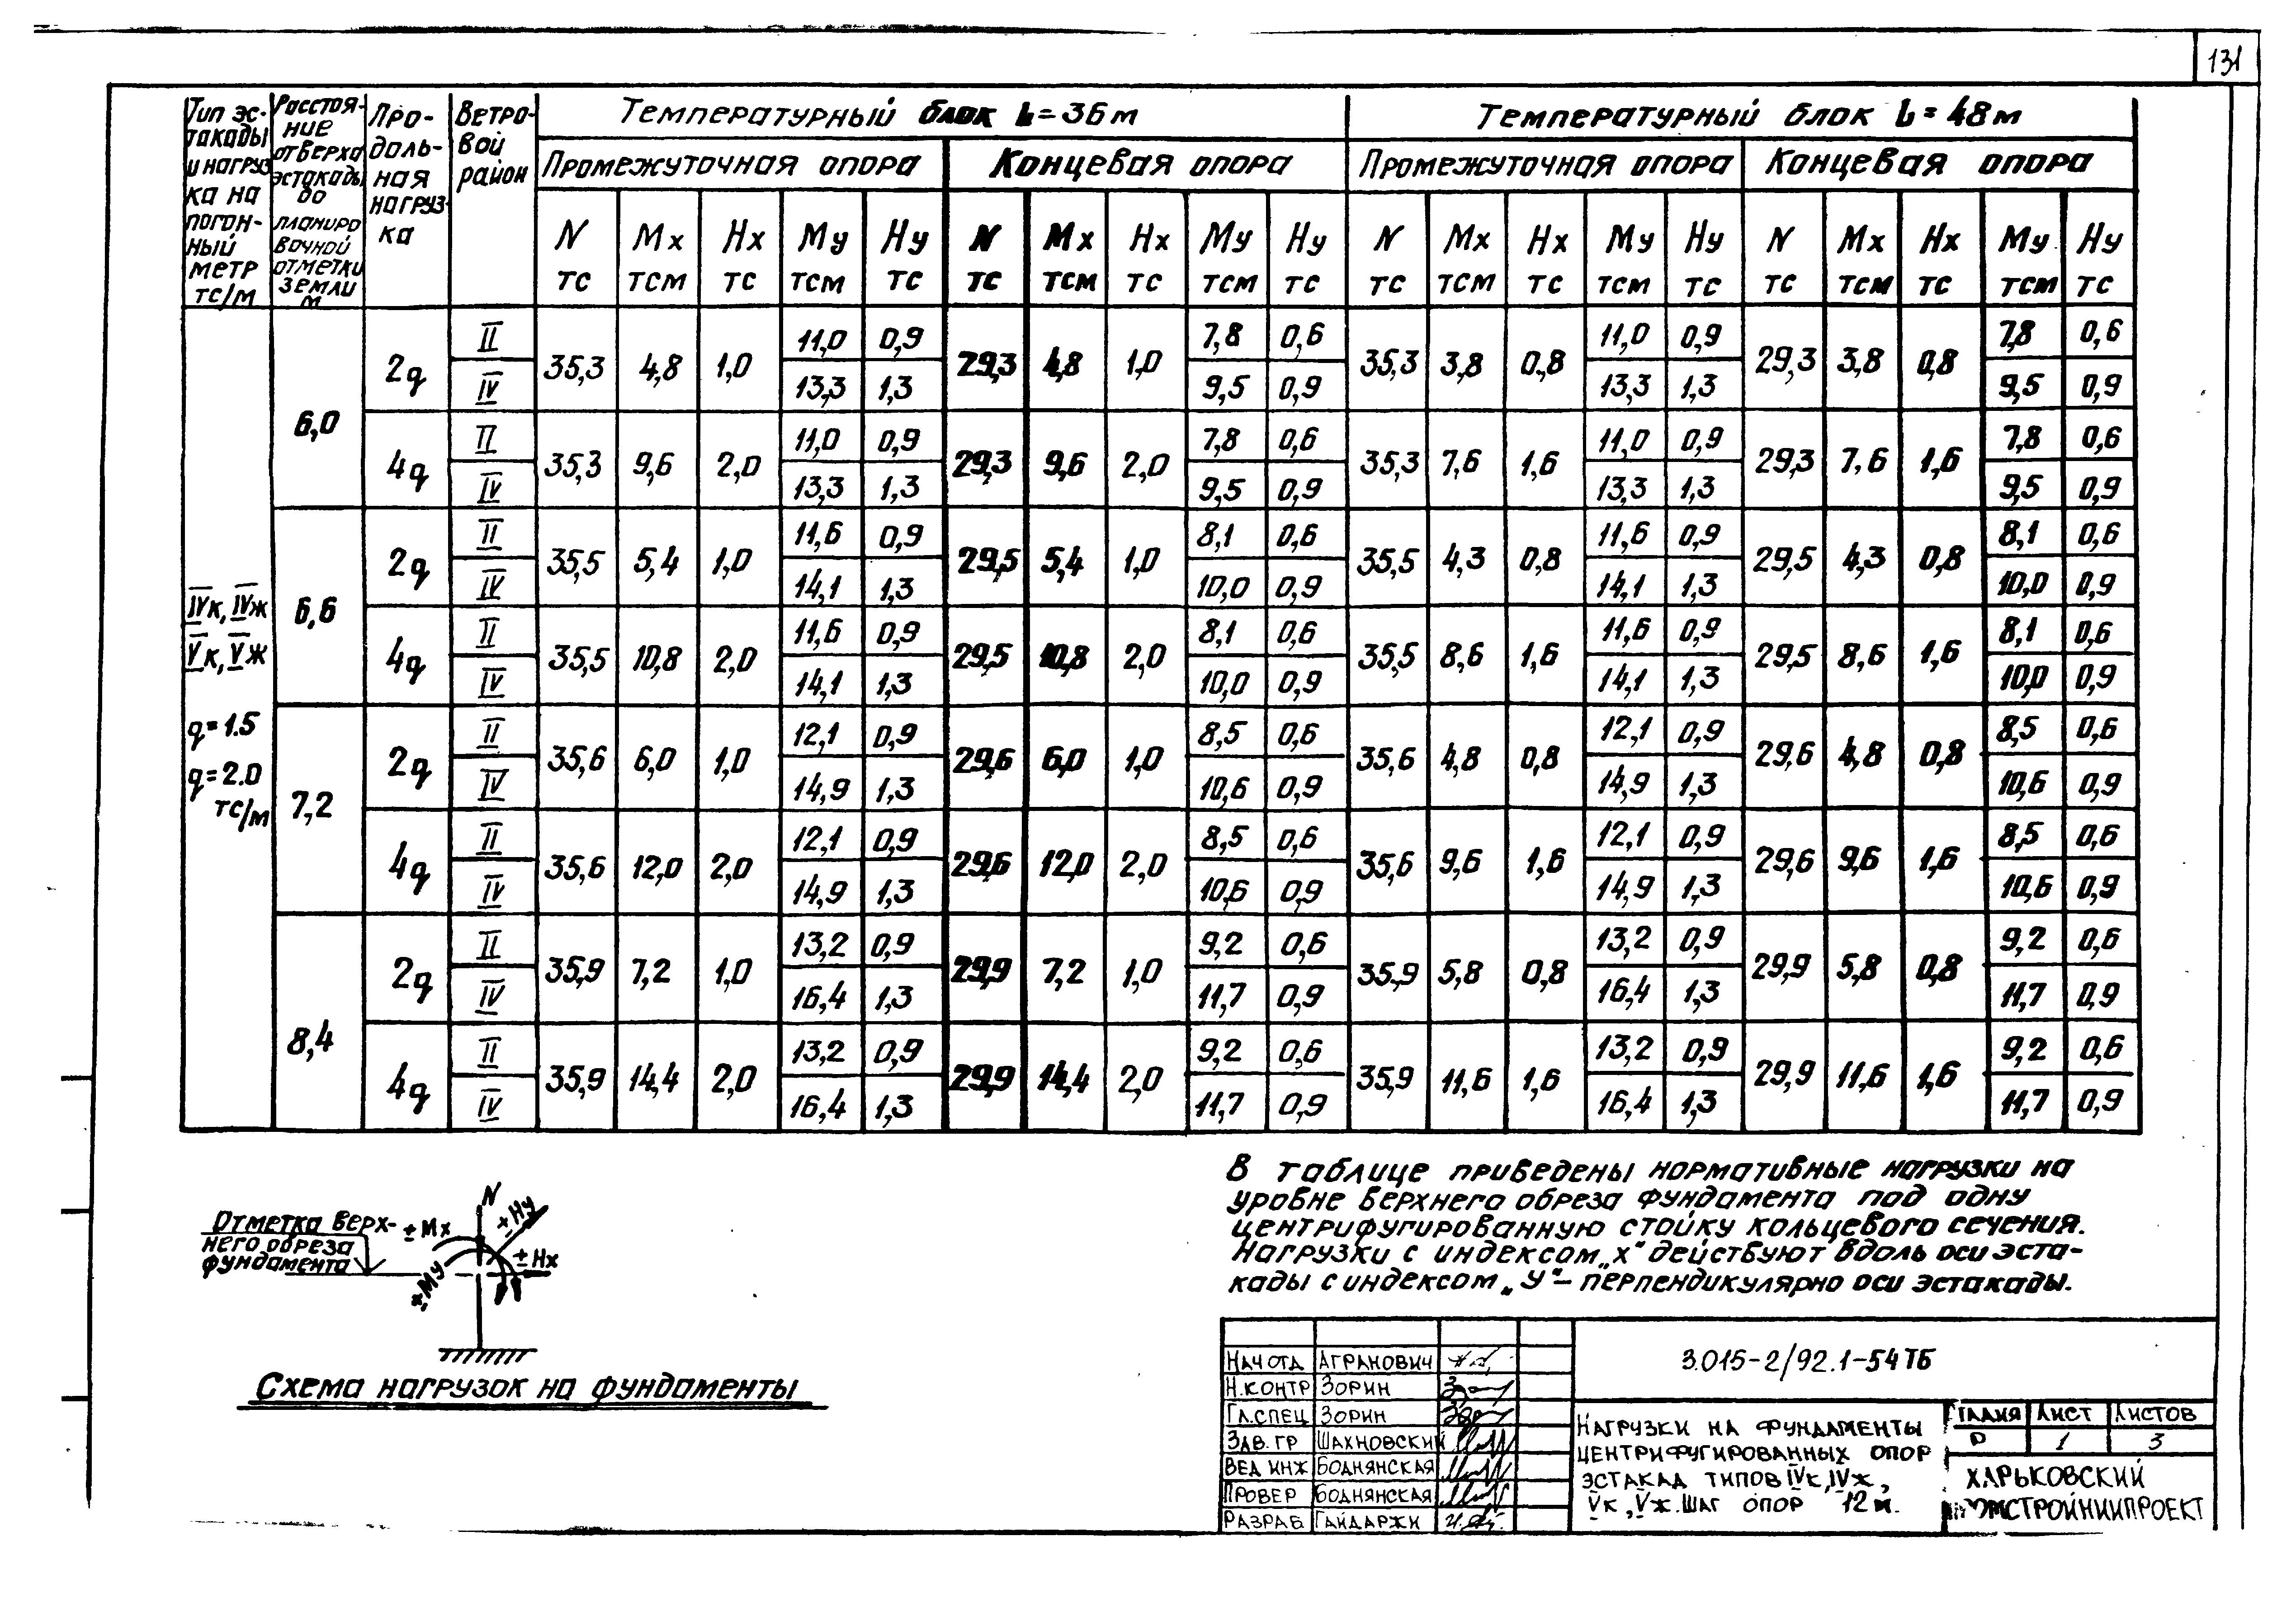 131
Тип эс-
такады
и нагруз
ка на
погон-
ный
метр
тс/м
Расстоя-
ние
от верха
эстакады
до
планиро
вочной
отметки
земли
м
Про-
доль-
ная
нагруз-
ка
Ветро-
вой
район
Температурный блок L=36м
Температурный блок L=48м
Промежуточная опора Концевая опора Промежуточная опора Концевая опора
N Mx Hx My Hy N Mx Hx My Hy N Mx Hx My Hy N Mx Hx My Hy
тс тсм тс тсм тс тс тсм тс тсм тс тс тсм тс тсм тс тс тсм тс тсм тс
IVк, IVж
Vк, Vж
q=1.5
q=2.0
тс/м
6,0
2q
II 11,0 0,9 7,8 0,6 11,0 0,9 7,8 0,6
35,3 4,8 1,0 29,3 4,8 1,0 35,3 3,8 0,8 29,3 3,8 0,8
IV 13,3 1,3 9,5 0,9 13,3 1,3 9,5 0,9
4q
II 11,0 0,9 7,8 0,6 11,0 0,9 7,8 0,6
35,3 9,6 2,0 29,3 9,6 2,0 35,3 7,6 1,6 29,3 7,6 1,6
IV 13,3 1,3 9,5 0,9 13,3 1,3 9,5 0,9
6,6
2q
II 11,6 0,9 8,1 0,6 11,6 0,9 8,1 0,6
35,5 5,4 1,0 29,5 5,4 1,0 35,5 4,3 0,8 29,5 4,3 0,8
IV 14,1 1,3 10,0 0,9 14,1 1,3 10,0 0,9
4q
II 11,6 0,9 8,1 0,6 11,6 0,9 8,1 0,6
35,5 10,8 2,0 29,5 10,8 2,0 35,5 8,6 1,6 29,5 8,6 1,6
IV 14,1 1,3 10,0 0,9 14,1 1,3 10,0 0,9
7,2
2q
II 12,1 0,9 8,5 0,6 12,1 0,9 8,5 0,6
35,6 6,0 1,0 29,6 6,0 1,0 35,6 4,8 0,8 29,6 4,8 0,8
IV 14,9 1,3 10,6 0,9 14,9 1,3 10,6 0,9
4q
II 12,1 0,9 8,5 0,6 12,1 0,9 8,5 0,6
35,6 12,0 2,0 29,6 12,0 2,0 35,6 9,6 1,6 29,6 9,6 1,6
IV 14,9 1,3 10,6 0,9 14,9 1,3 10,6 0,9
8,4
2q
II 13,2 0,9 9,2 0,6 13,2 0,9 9,2 0,6
35,9 7,2 1,0 29,9 7,2 1,0 35,9 5,8 0,8 29,9 5,8 0,8
IV 16,4 1,3 11,7 0,9 16,4 1,3 11,7 0,9
4q
II 13,2 0,9 9,2 0,6 13,2 0,9 9,2 0,6
35,9 14,4 2,0 29,9 14,4 2,0 35,9 11,6 1,6 29,9 11,6 1,6
IV 16,4 1,3 11,7 0,9 16,4 1,3 11,7 0,9
Отметка верх-
него обреза
фундамента
N
±Mx
±Hy
±Hx
±My
Схема нагрузок на фундаменты
В таблице приведены нормативные нагрузки на
уровне верхнего обреза фундамента под одну
центрифугированную стойку кольцевого сечения.
Нагрузки с индексом „х" действуют вдоль оси эста-
кады с индексом „у" – перпендикулярно оси эстакады.
Нач отд Агранович
Н.контр Зорин
Гл.спец Зорин
Зав. гр Шахновский
Вед инж Боднянская
Провер Боднянская
Разраб Гайдаржи
3.015-2/92.1-54ТБ
Нагрузки на фундаменты
центрифугированных опор
эстакад типов IVк, IVж,
Vк, Vж. Шаг опор 12м.
Стадия Лист Листов
Р 1 3
Харьковский
Промстройниипроект